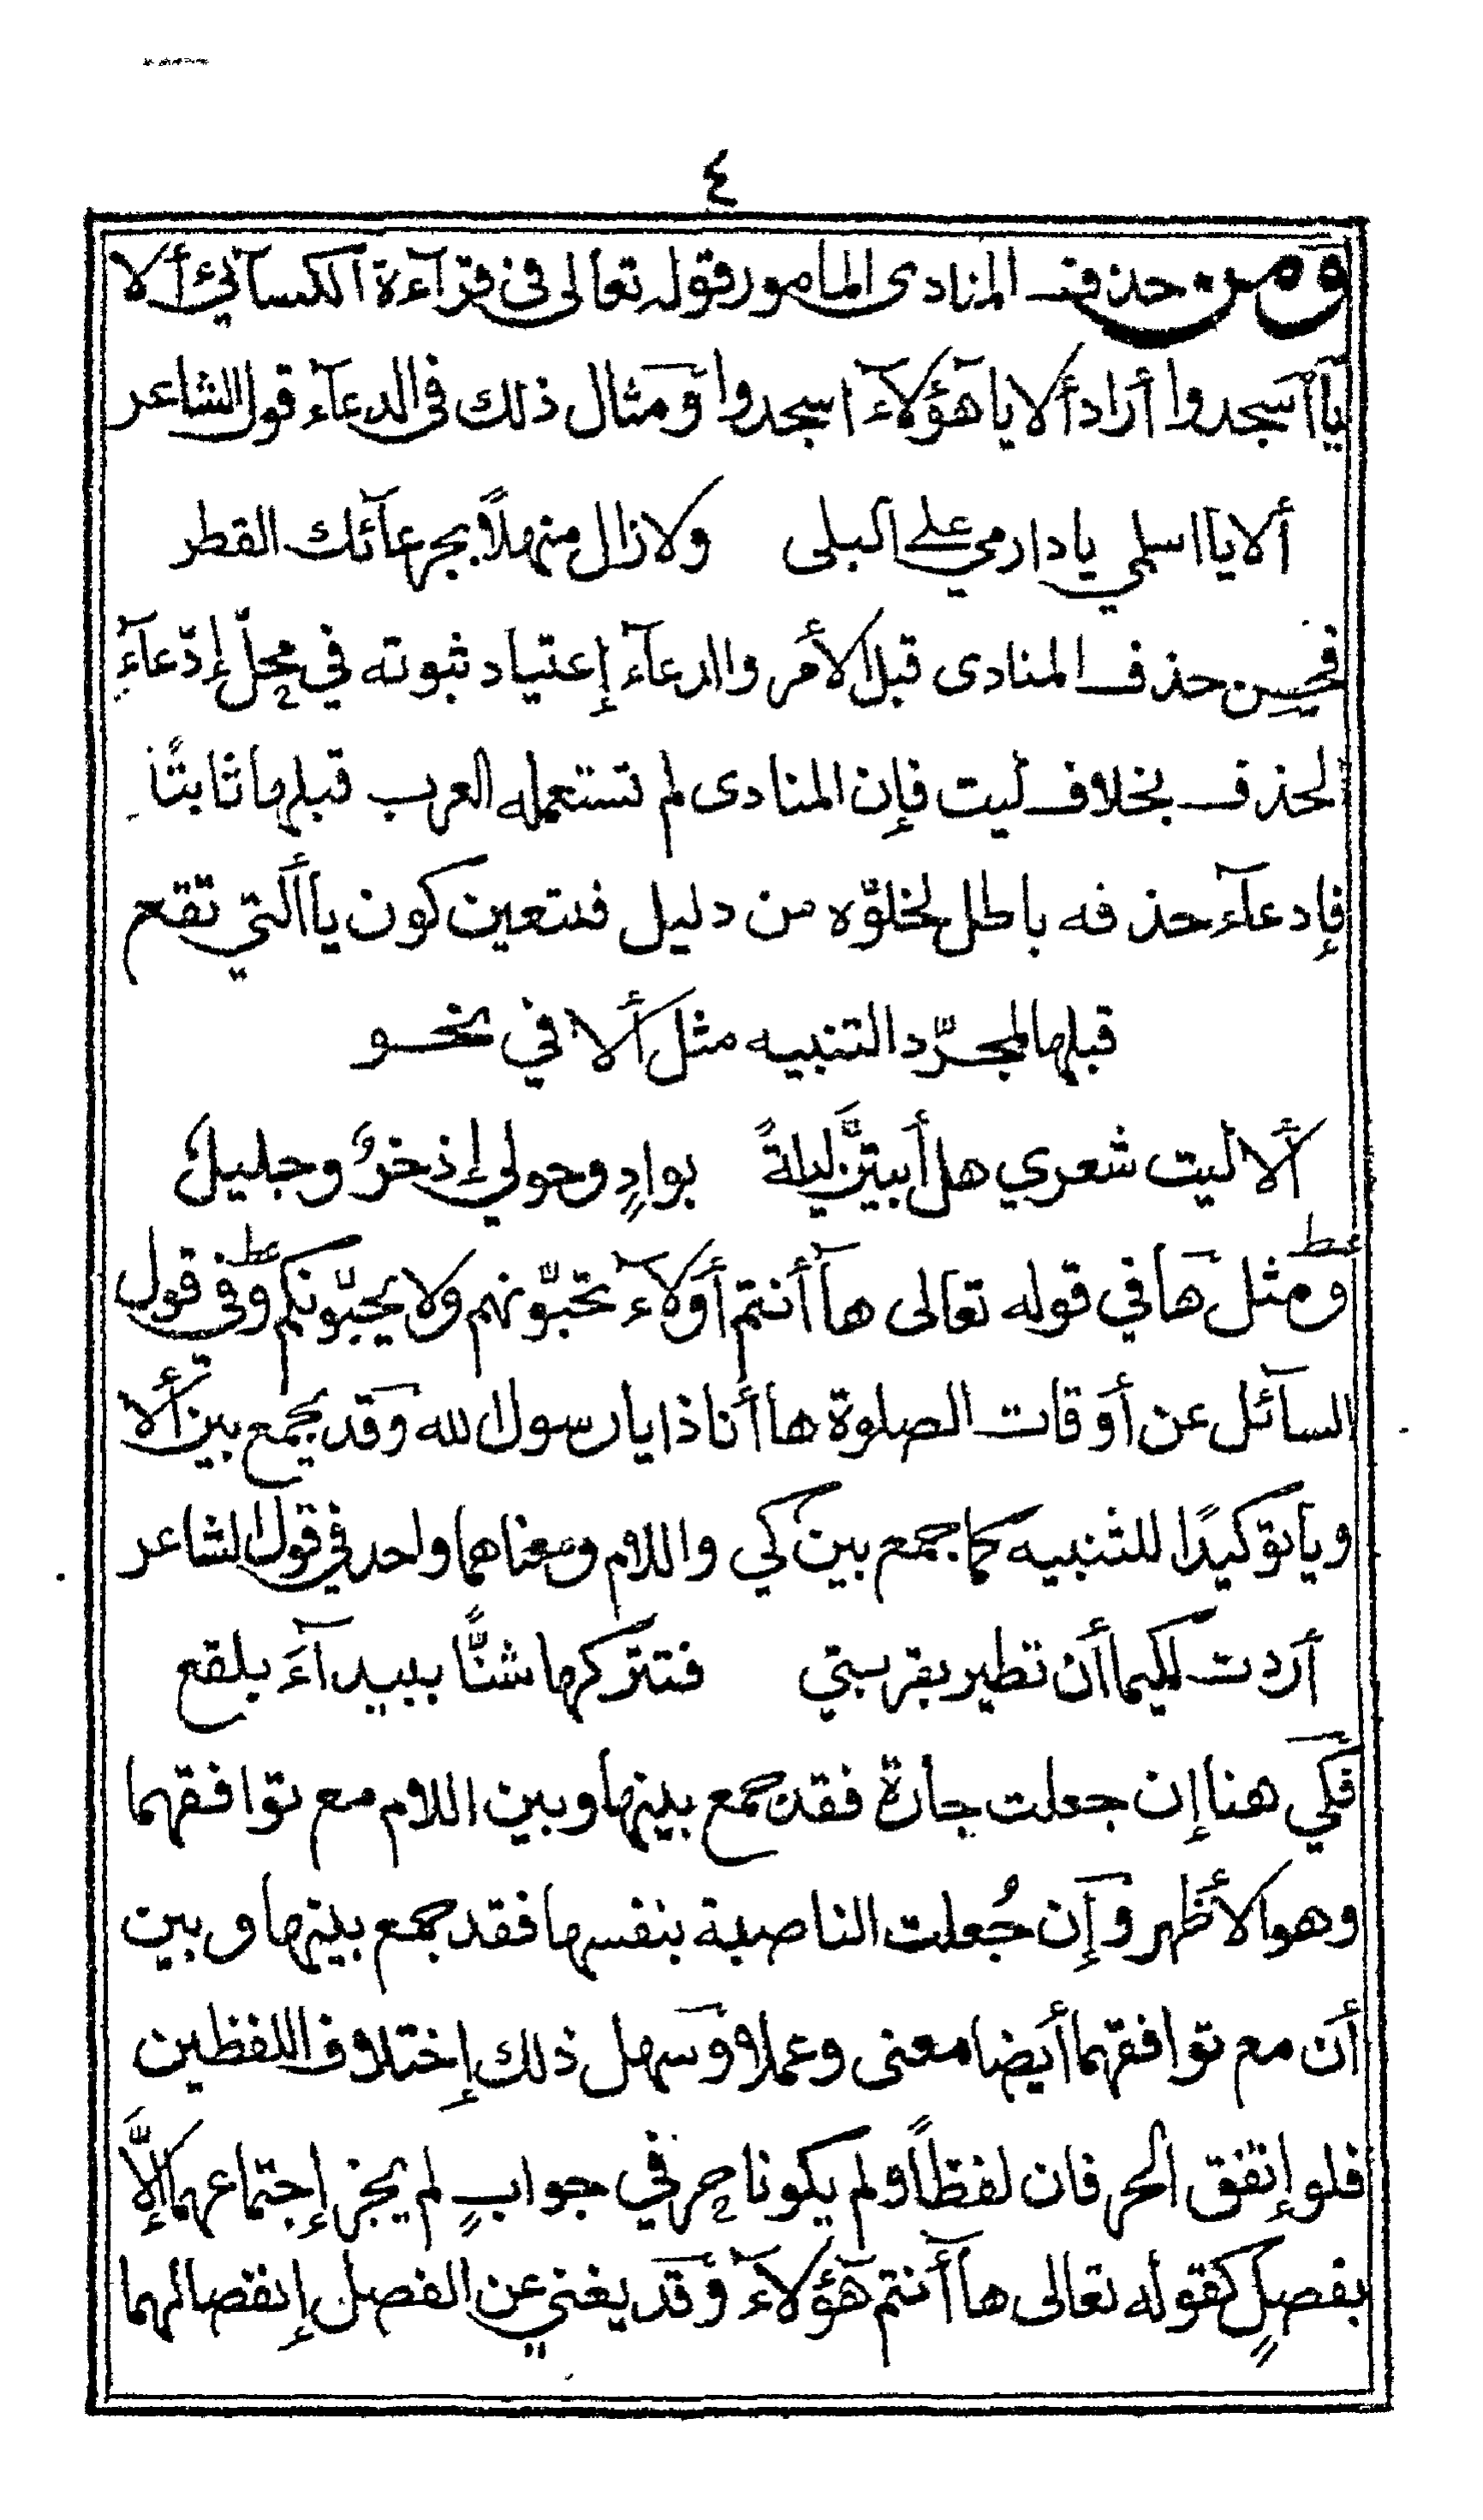 ٤
ومن حذف المنادى المامور قوله تعالى في قرآءة الكسآئي ألا
يآ اسجدوا أراد ألا يا هؤلآء اسجدوا ومثال ذلك في الدعآء قول الشاعر
ألا يآ اسلمي يا دار مي على البلى ولا زال منهلاً بجرعآئك القطر
فحسن حذف المنادى قبل الأمر والدعآء إعتياد ثبوته في محلّ إدّعآءِ
الحذف بخلاف ليت فإن المنادى لم تستعمله العرب قبلها ثابتًا
فإدعآء حذفه باطل لخلوّه من دليل فتعين كون يا ألتي تقع
قبلها لمجرّد التنبيه مثل ألا في نحو
ألا ليت شعري هل أبيتنَّ ليلةً بوادٍ وحولي إذخرٌ وجليلُ
ومثل ها في قوله تعالى هآ أنتم أولآء تحبّونهم ولا يحبّونكم وفي قول
السآئل عن أوقات الصلوة ها أنا ذا يا رسول الله وقد يجمع بين ألا
ويا توكيدًا للتنبيه كما جمع بين كي واللام ومعناهما واحد في قول الشاعر
أردت لكيما أن تطير بقربتي فتتركها شنًّا ببيدآءَ بلقع
فكي هنا إن جعلت جارة فقد جمع بينها وبين اللام مع توافقهما
وهو الأظهر وإن جُعلت الناصبة بنفسها فقد جمع بينها وبين
أن مع توافقهما أيضا معنى وعملا وسهل ذلك إختلاف اللفظين
فلو إتفق الحرفان لفظاً ولم يكونا حرفي جوابٍ لم يجز إجتماعهما إلاَّ
بفصلٍ كقوله تعالى هآ أنتم هؤلآء وقد يغني عن الفصل إنفصالهما